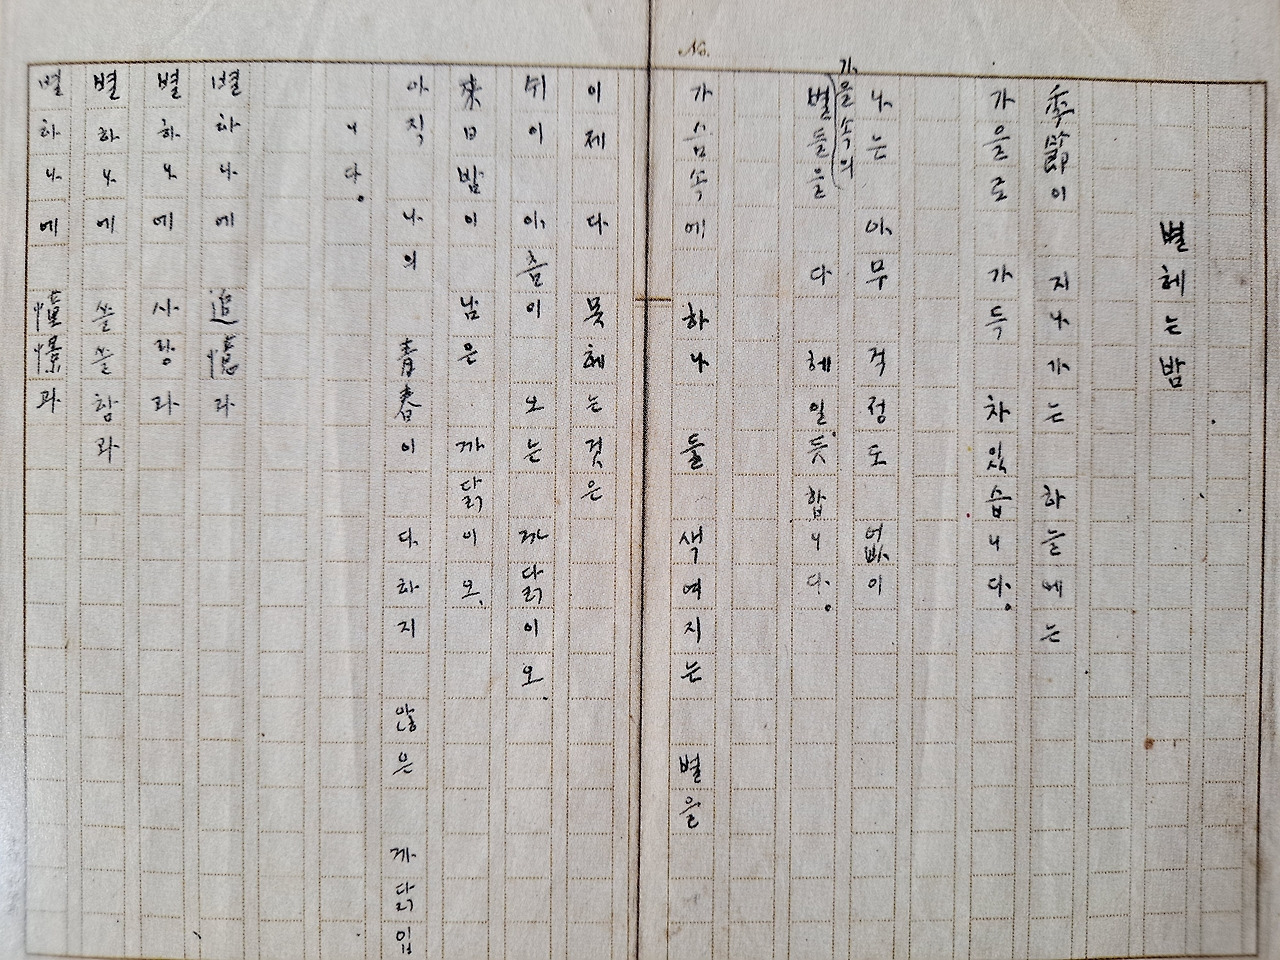 No.
별헤는밤
季節이 지나가는 하늘에는
가을로 가득 차있습니다.
나는 아무 걱정도 없이
가을속의
별들을 다 헤일듯합니다.
가슴속에 하나 둘 색여지는 별을
이제 다 못헤는것은
쉬이 아츰이 오는 까닭이오.
來日밤이 남은 까닭이오.
아직 나의 靑春이 다하지 않은 까닭입
니다.
별하나에 追憶과
별하나에 사랑과
별하나에 쓸쓸함과
별하나에 憧憬과